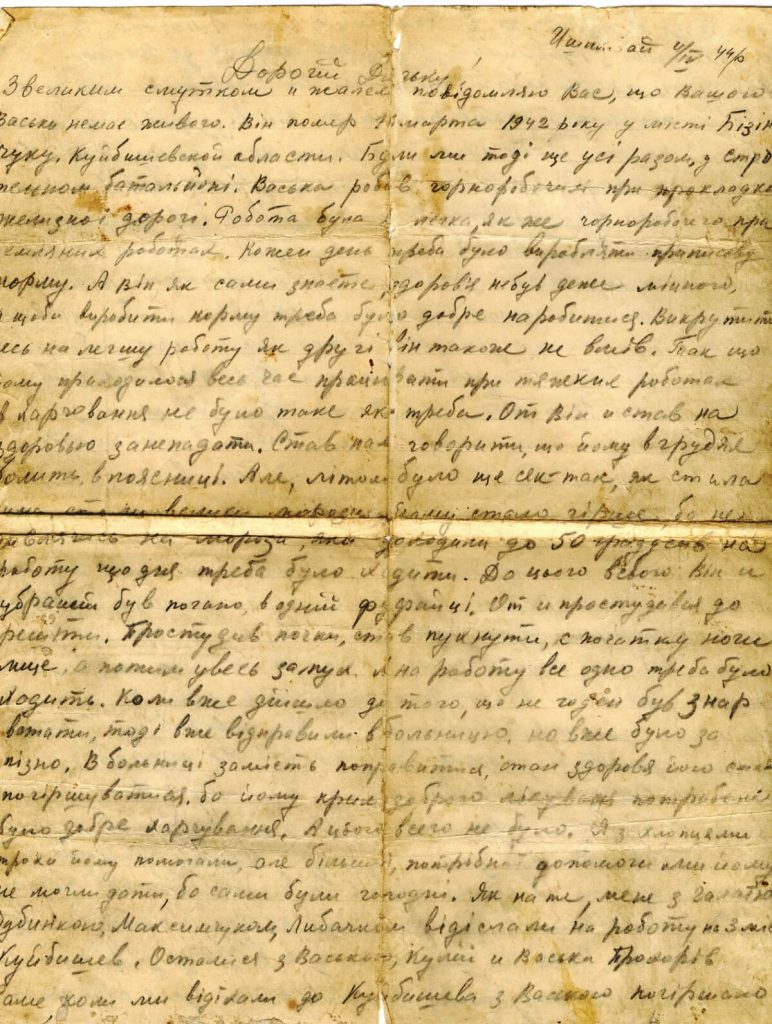 Ишимбай 4/IV 44р
Дорогий Дядьку!
З великим смутком и жалем повідомляю Вас, що Вашого
Васька немає живого. Він помер 18 марта 1942 року у місті Бізін
чуку, Куйбишевской области. Були ми тоді ще усі разом, у строї
тельном батальйоні. Васька робив горноробочим при прокладке
желизної дороги. Робота була не легка, як же чорноробочого при
земляних роботах. Кожен день треба було виробляти приписову
норму. А він як сами знаєте, здоровїє небув дуже міцного,
а щоби виробити норму треба було добре наробитися. Викрутити
десь на легшу роботу як другі він також не вмів. Так що
йому приходилося весь час працювати при тяжких роботах
а харчовання не було таке як треба. От він и став на
здоровью занепадати. Став нам говорити, що йому в грудях
болить, в поясниці. Але, літом було ще сяк-так, як стала
зима великі морози йому стало гірше, бо не
дивлячись на мороза, які доходили до 50 градусів на
роботу щодня треба було ходити. До цього всього він и
убраний був погано, в одній фуфайці. От и простудовся до
решти. Простудив почки, став пухнути, с початку ноги
лице, а потим увесь запух. А на роботу все одно треба було
ходить. Коли вже дійшло до того, що не годен був
тоді вже відправили в больницю, но вже було за
пізно. В больниці замість поправитися, стан здоровя його став
погіршуватися, бо йому крим доброго лікування потребені
було добре харчування. А цього всего не було. Я з хлопцями
трохи йому помогали, але більшої, потрібної допомоги ми йому
не могли дати, бо сами були голодні. Як на те, мене з
Дубинкою, Максимчуком, Либачком відіслали на роботу в місто
Куйбишев. Осталися з Ваською, Кулій и Васька Прохорів
Саме, коли ми відїхали до Куйбишева з Ваською погіршало